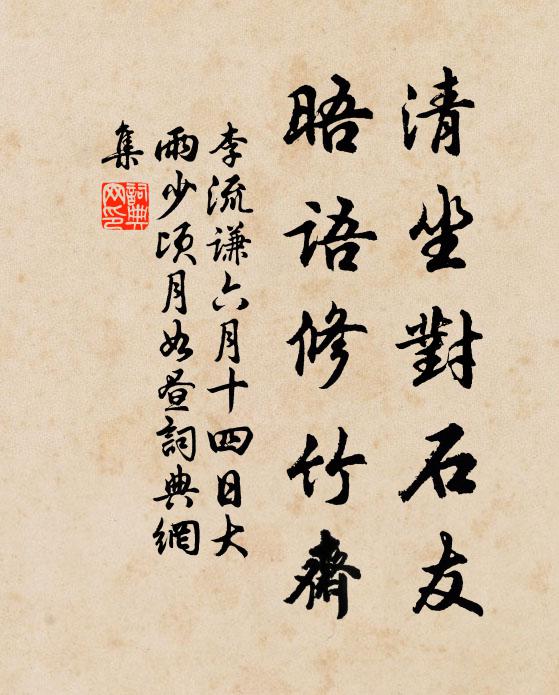 清坐對石友
晤語修竹齋
李流谦六月十四日大
雨少頃月如昼詞典網
集
詞典
网印